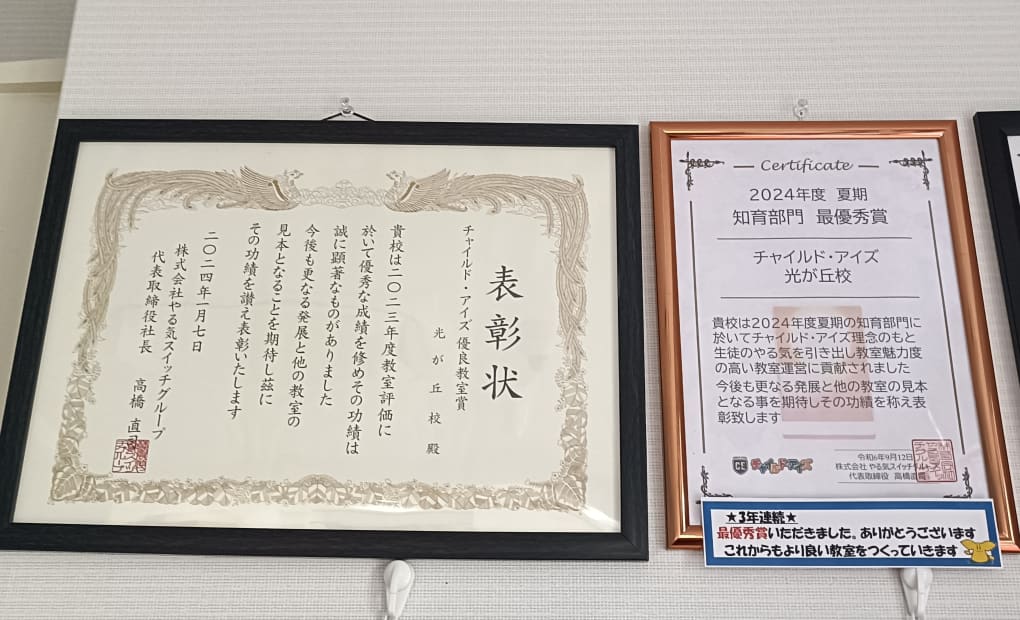 表彰状
チャイルド・アイズ優良教室賞
光が丘校殿
貴校は二〇二三年度教室評価に
於いて優秀な成績を修めその功績は
誠に顕著なものがありました
今後も更なる発展と他の教室の
見本となることを期待し茲に
その功績を讃え表彰いたします
二〇二四年一月七日
株式会社やる気スイッチグループ
代表取締役社長 高橋直司
Certificate
2024年度 夏期
知育部門 最優秀賞
チャイルド・アイズ
光が丘校
貴校は2024年度夏期の知育部門に
於いてチャイルド・アイズ理念のもと
生徒のやる気を引き出し教室魅力度
の高い教室運営に貢献されました
今後も更なる発展と他の教室の見本
となる事を期待しその功績を称え表
彰致します
CE チャイルド・アイズ
令和6年9月12日
株式会社 やる気スイッチグループ
代表取締役 高橋直司
★3年連続★
最優秀賞いただきました。ありがとうございます
これからもより良い教室をつくっていきます